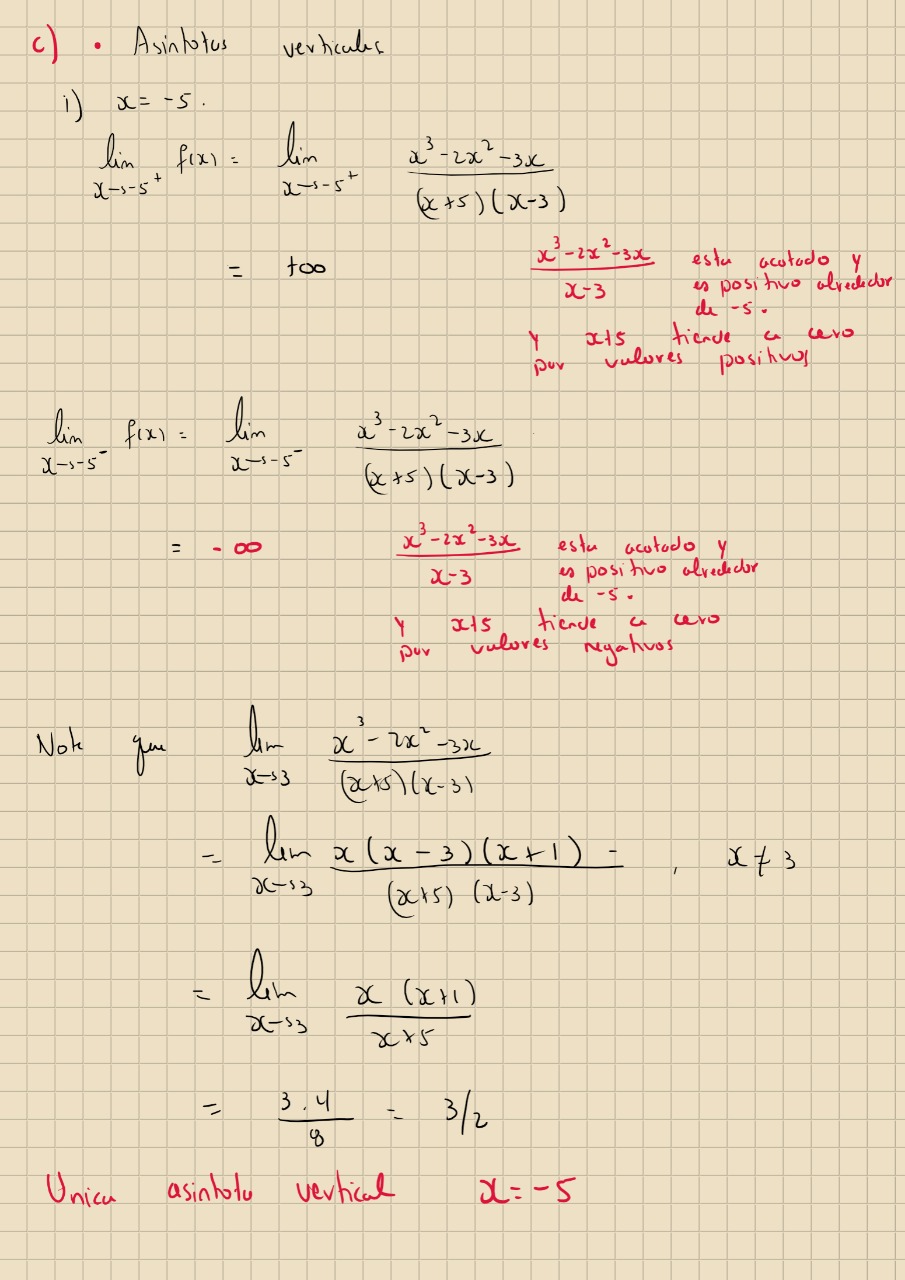 c) • Asintotas verticales
i) x = -5.
lim x→-5⁺ f(x) = lim x→-5⁺ (x³-2x²-3x)/((x+5)(x-3))
= +∞
(x³-2x²-3x)/(x-3) esta acotado y
es positivo alrededor
de -5.
Y x+5 tiende a cero
por valores positivos
lim x→-5⁻ f(x) = lim x→-5⁻ (x³-2x²-3x)/((x+5)(x-3))
= -∞
(x³-2x²-3x)/(x-3) esta acotado y
es positivo alrededor
de -5.
Y x+5 tiende a cero
por valores negativos
Note que lim x→3 (x³-2x²-3x)/((x+5)(x-3))
= lim x→3 (x(x-3)(x+1))/((x+5)(x-3)), x≠3
= lim x→3 (x(x+1))/(x+5)
= (3.4)/8 = 3/2
Unica asintota vertical x=-5